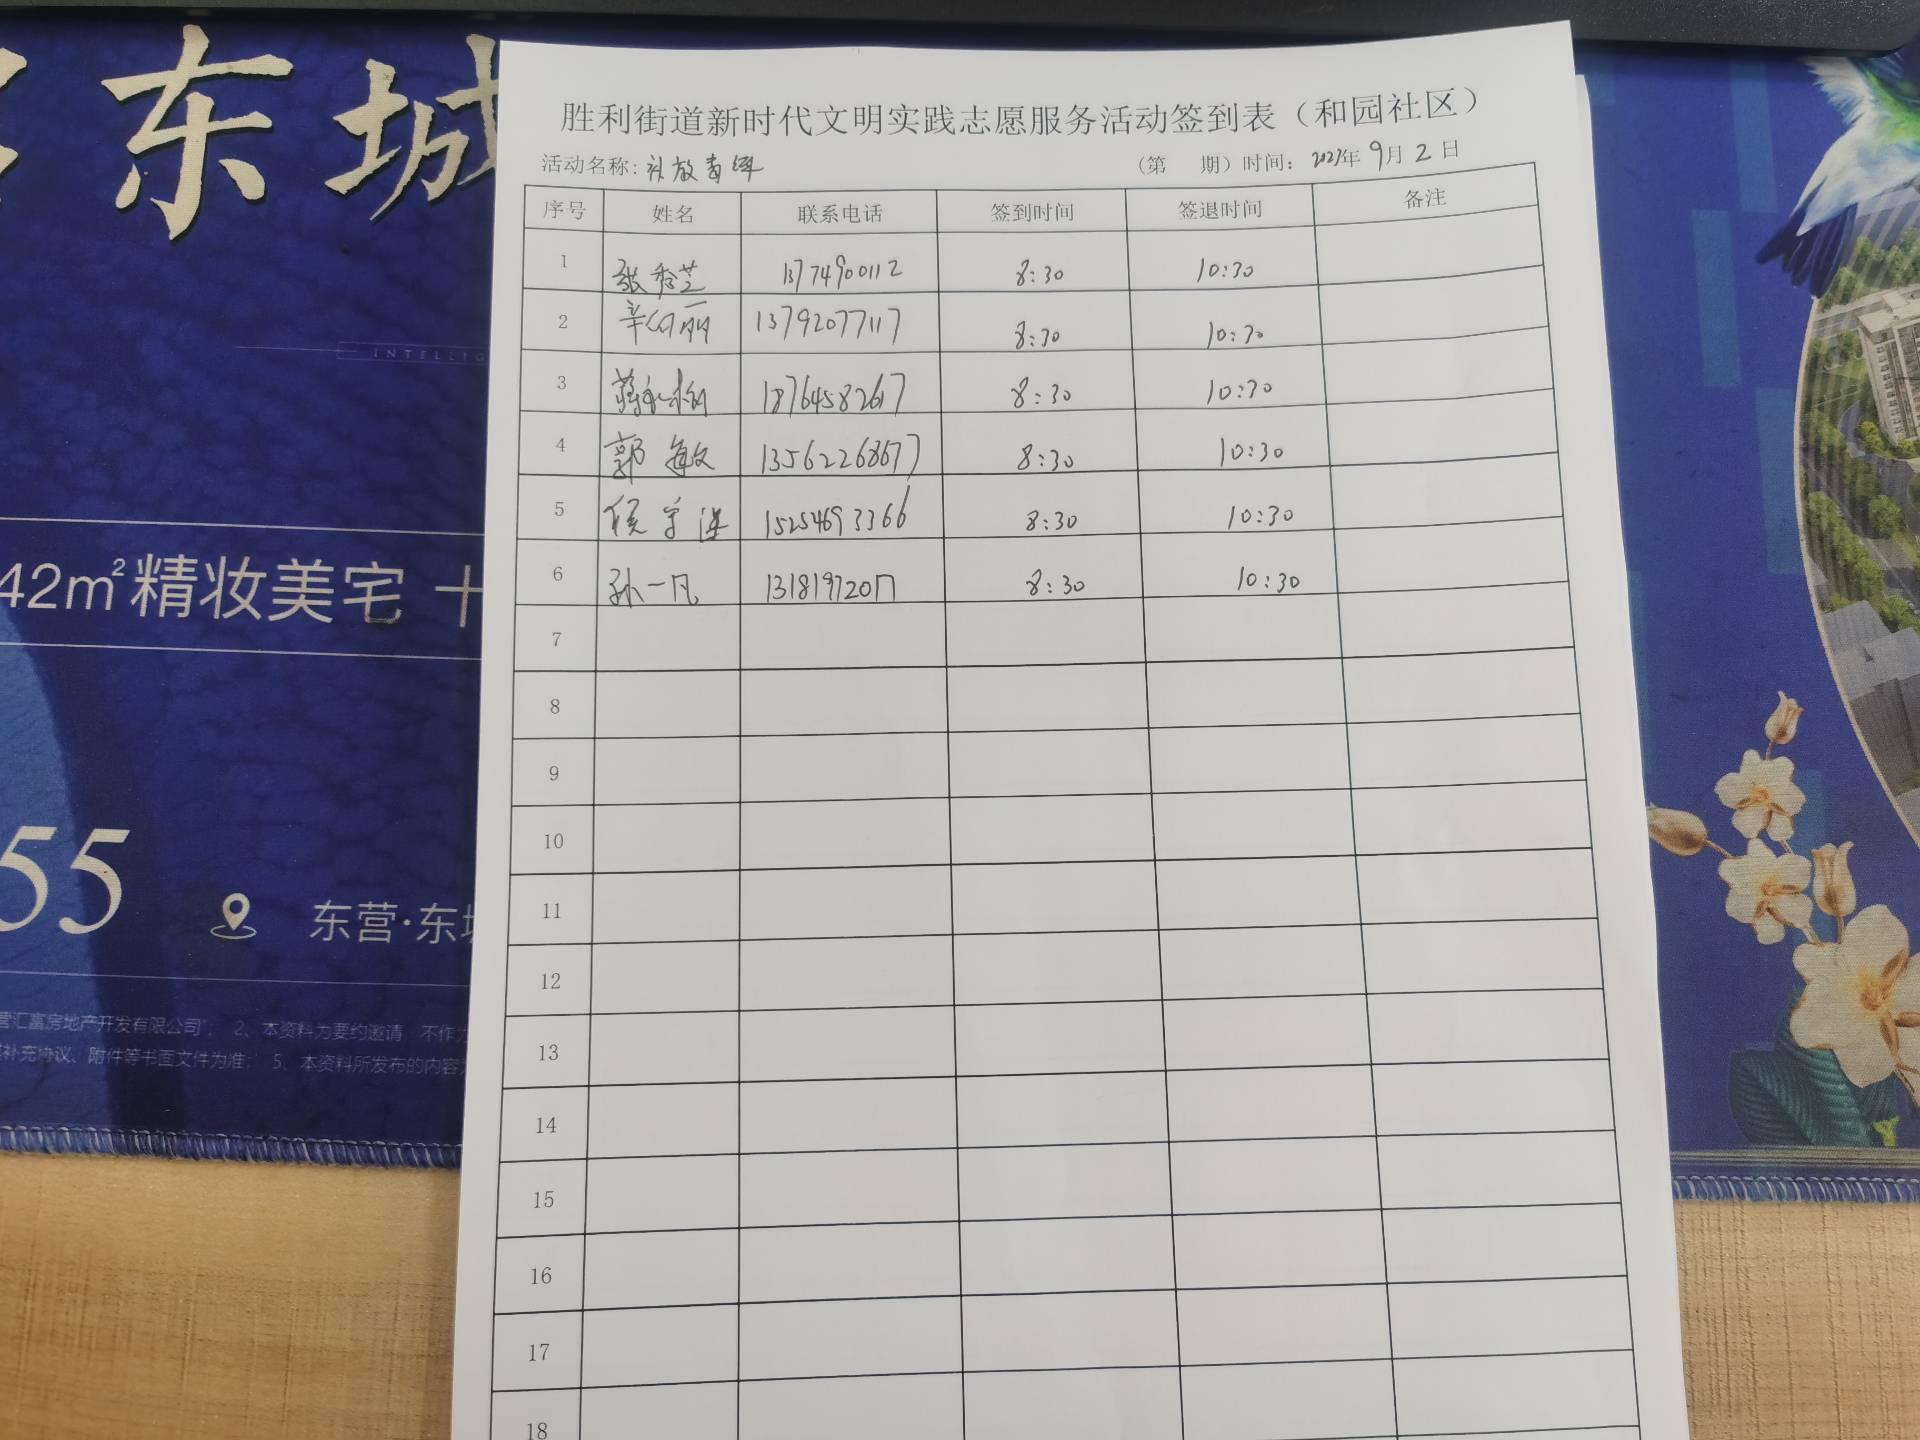 东城
INTELLIG
42m²精妆美宅 十
55
东营·东城
营汇富房地产开发有限公司”； 2、本资料为要约邀请，不作为
补充协议、附件等书面文件为准； 5、本资料所发布的内容
胜利街道新时代文明实践志愿服务活动签到表（和园社区）
活动名称： （第 期）时间：2023年9月2日
序号 姓名 联系电话 签到时间 签退时间 备注
1 张秀芝 13774900112 8:30 10:30
2 13792077117 8:30 10:30
3 18764582617 8:30 10:30
4 郭敏 13562268677 8:30 10:30
5 侯 15254693366 8:30 10:30
6 孙一凡 8:30 10:30
7
8
9
10
11
12
13
14
15
16
17
18